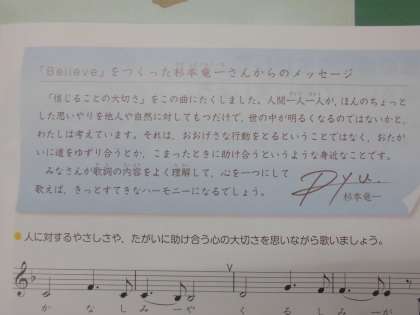 「Believe」をつくった杉本竜一さんからのメッセージ
「信じることの大切さ」をこの曲にたくしました。人間一人一人が、ほんのちょっと
した思いやりを他人や自然に対してもつだけで、世の中が明るくなるのではないかと、
わたしは考えています。それは、おおげさな行動をとるということではなく、おたが
いに道をゆずり合うとか、こまったときに助け合うというような身近なことです。
みなさんが歌詞の内容をよく理解して、心を一つにして
歌えば、きっとすてきなハーモニーになるでしょう。
Ryu.
杉本竜一
●人に対するやさしさや、たがいに助け合う心の大切さを思いながら歌いましょう。
V
かなしみーや くるしみーが